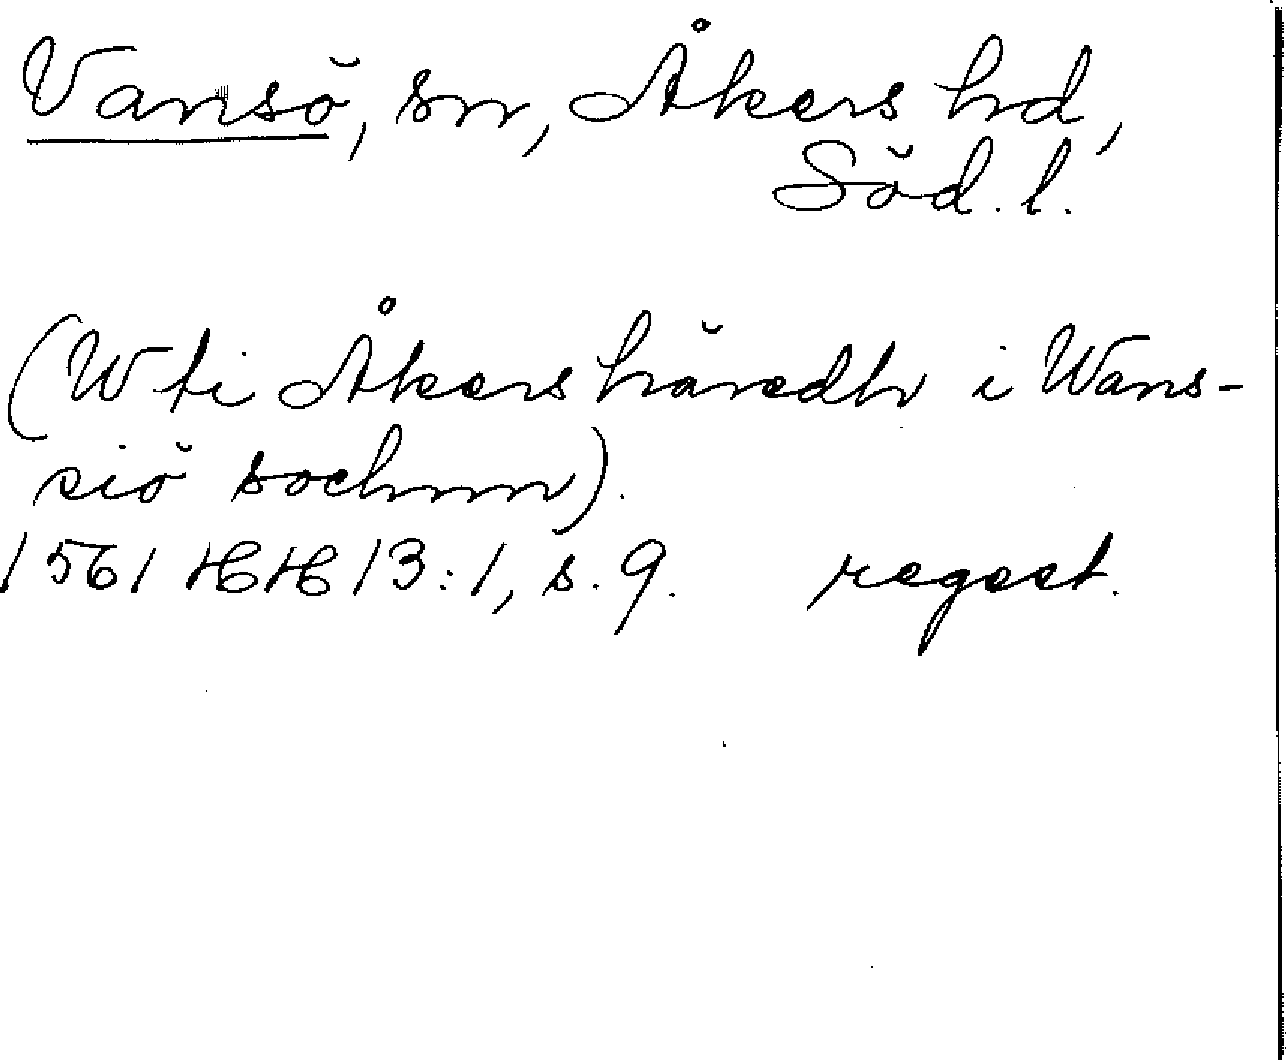 Vansö, sn, Åkers hd,
Söd. l.
(Wti Åkers häredh i Wans-
siö sochnn).
1561 HH 13:1, s. 9. regest.